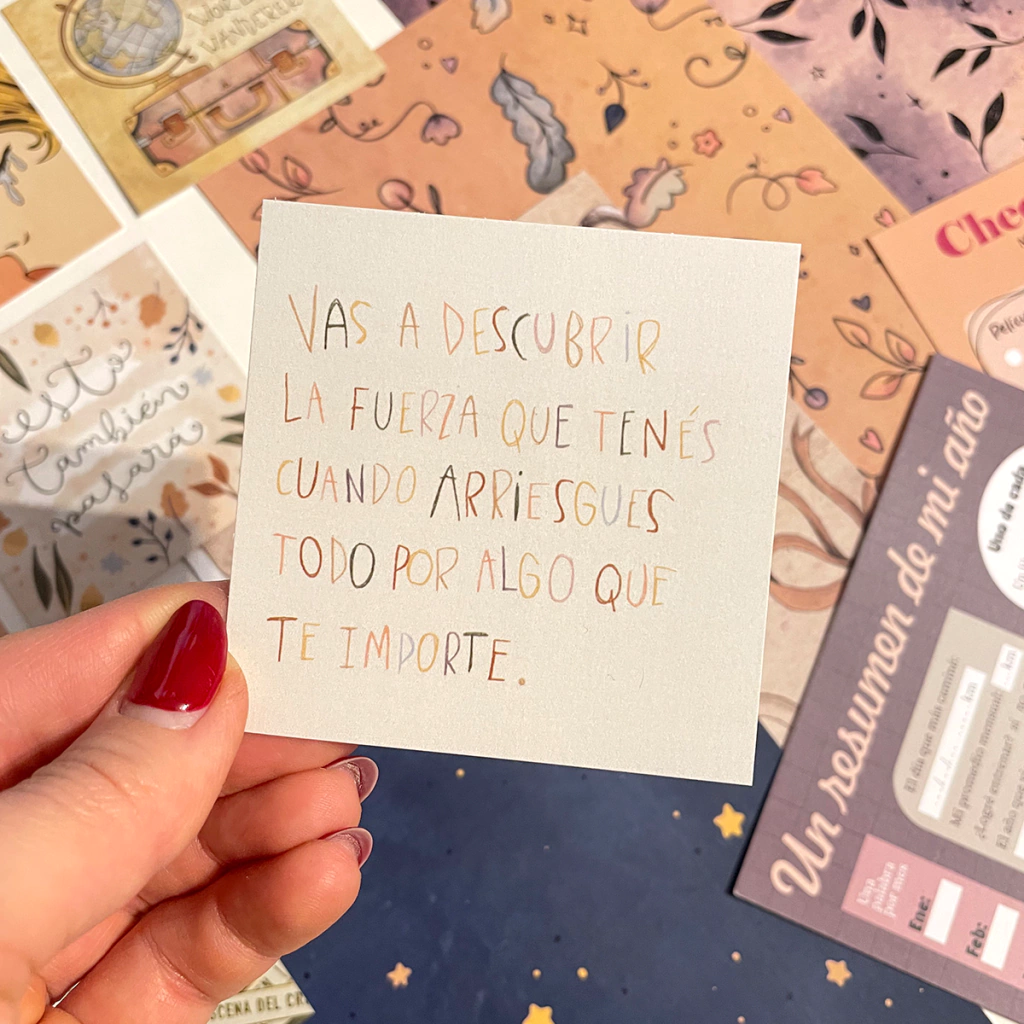 VAS A DESCUBRIR
LA FUERZA QUE TENÉS
CUANDO ARRIESGUES
TODO POR ALGO QUE
TE IMPORTE.
WANDERER
esto
también
pasará
Un resumen de mi año
Uno de cada
El día que más caminé:
km
Mi promedio mensual:
km
¿Logré entrenar? sí
El año que
Una
palabra
por mes
Ene:
Feb: